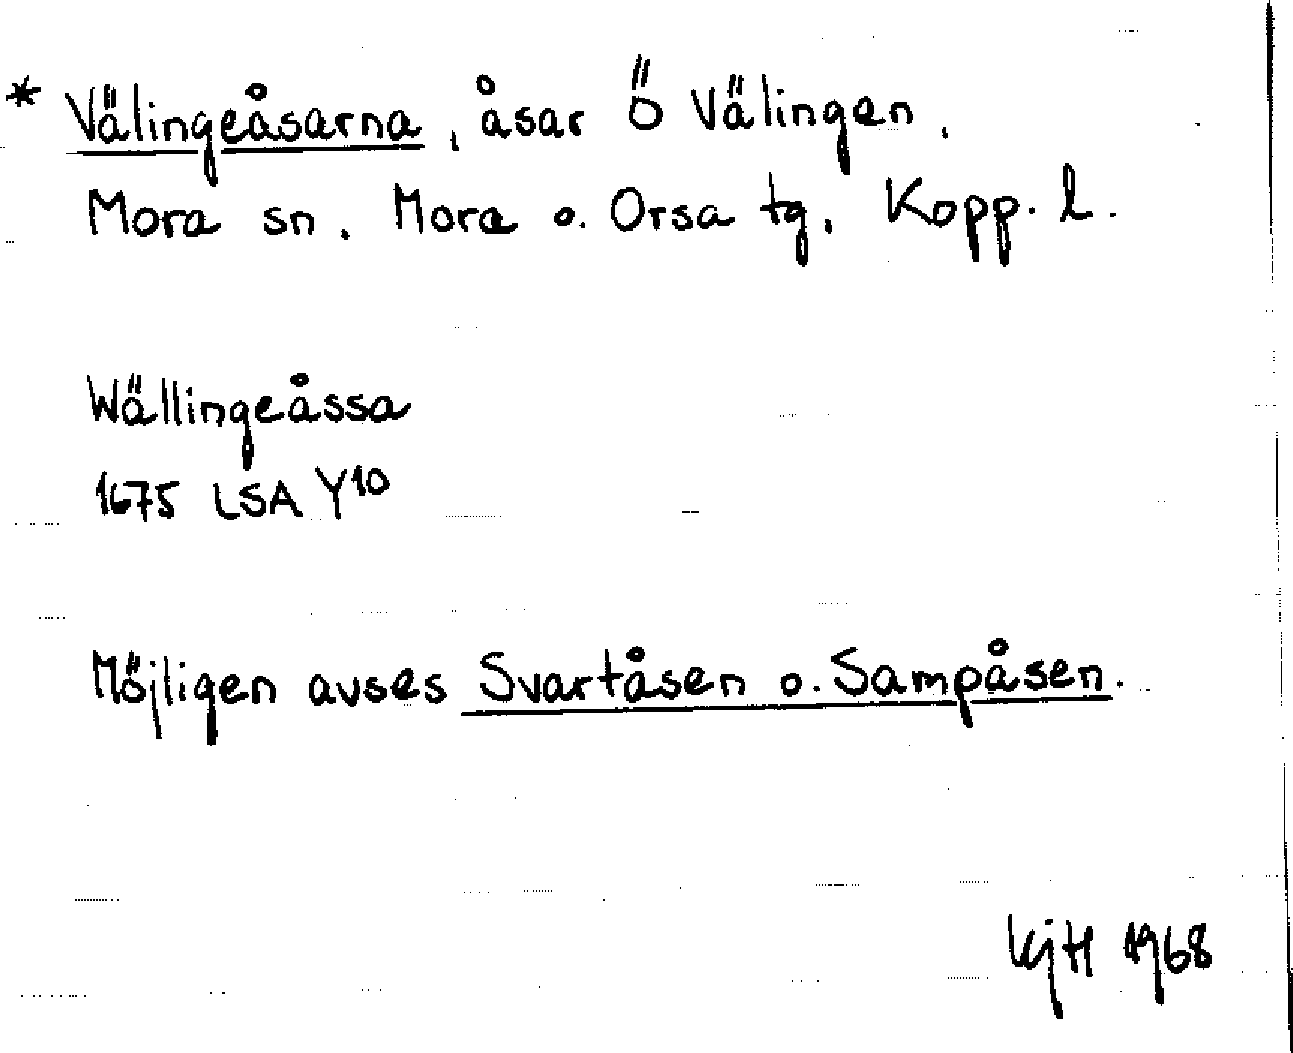 * Välingeåsarna, åsar Ö Välingen,
Mora sn, Mora o. Orsa tg, Kopp. l.
Wällingeåssa
1675 LSA Y10
Möjligen avses Svartåsen o. Sampåsen.
1968